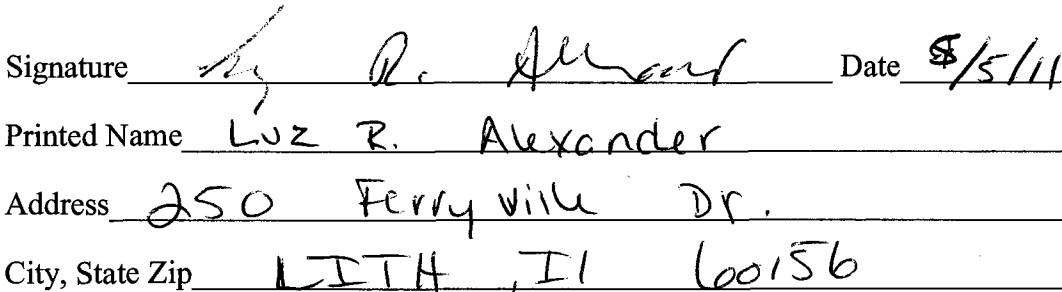 Signature R. Date /5/11
Printed Name Luz R. Alexander
Address 250 Ferryville Dr.
City, State Zip LITH, Il 60156